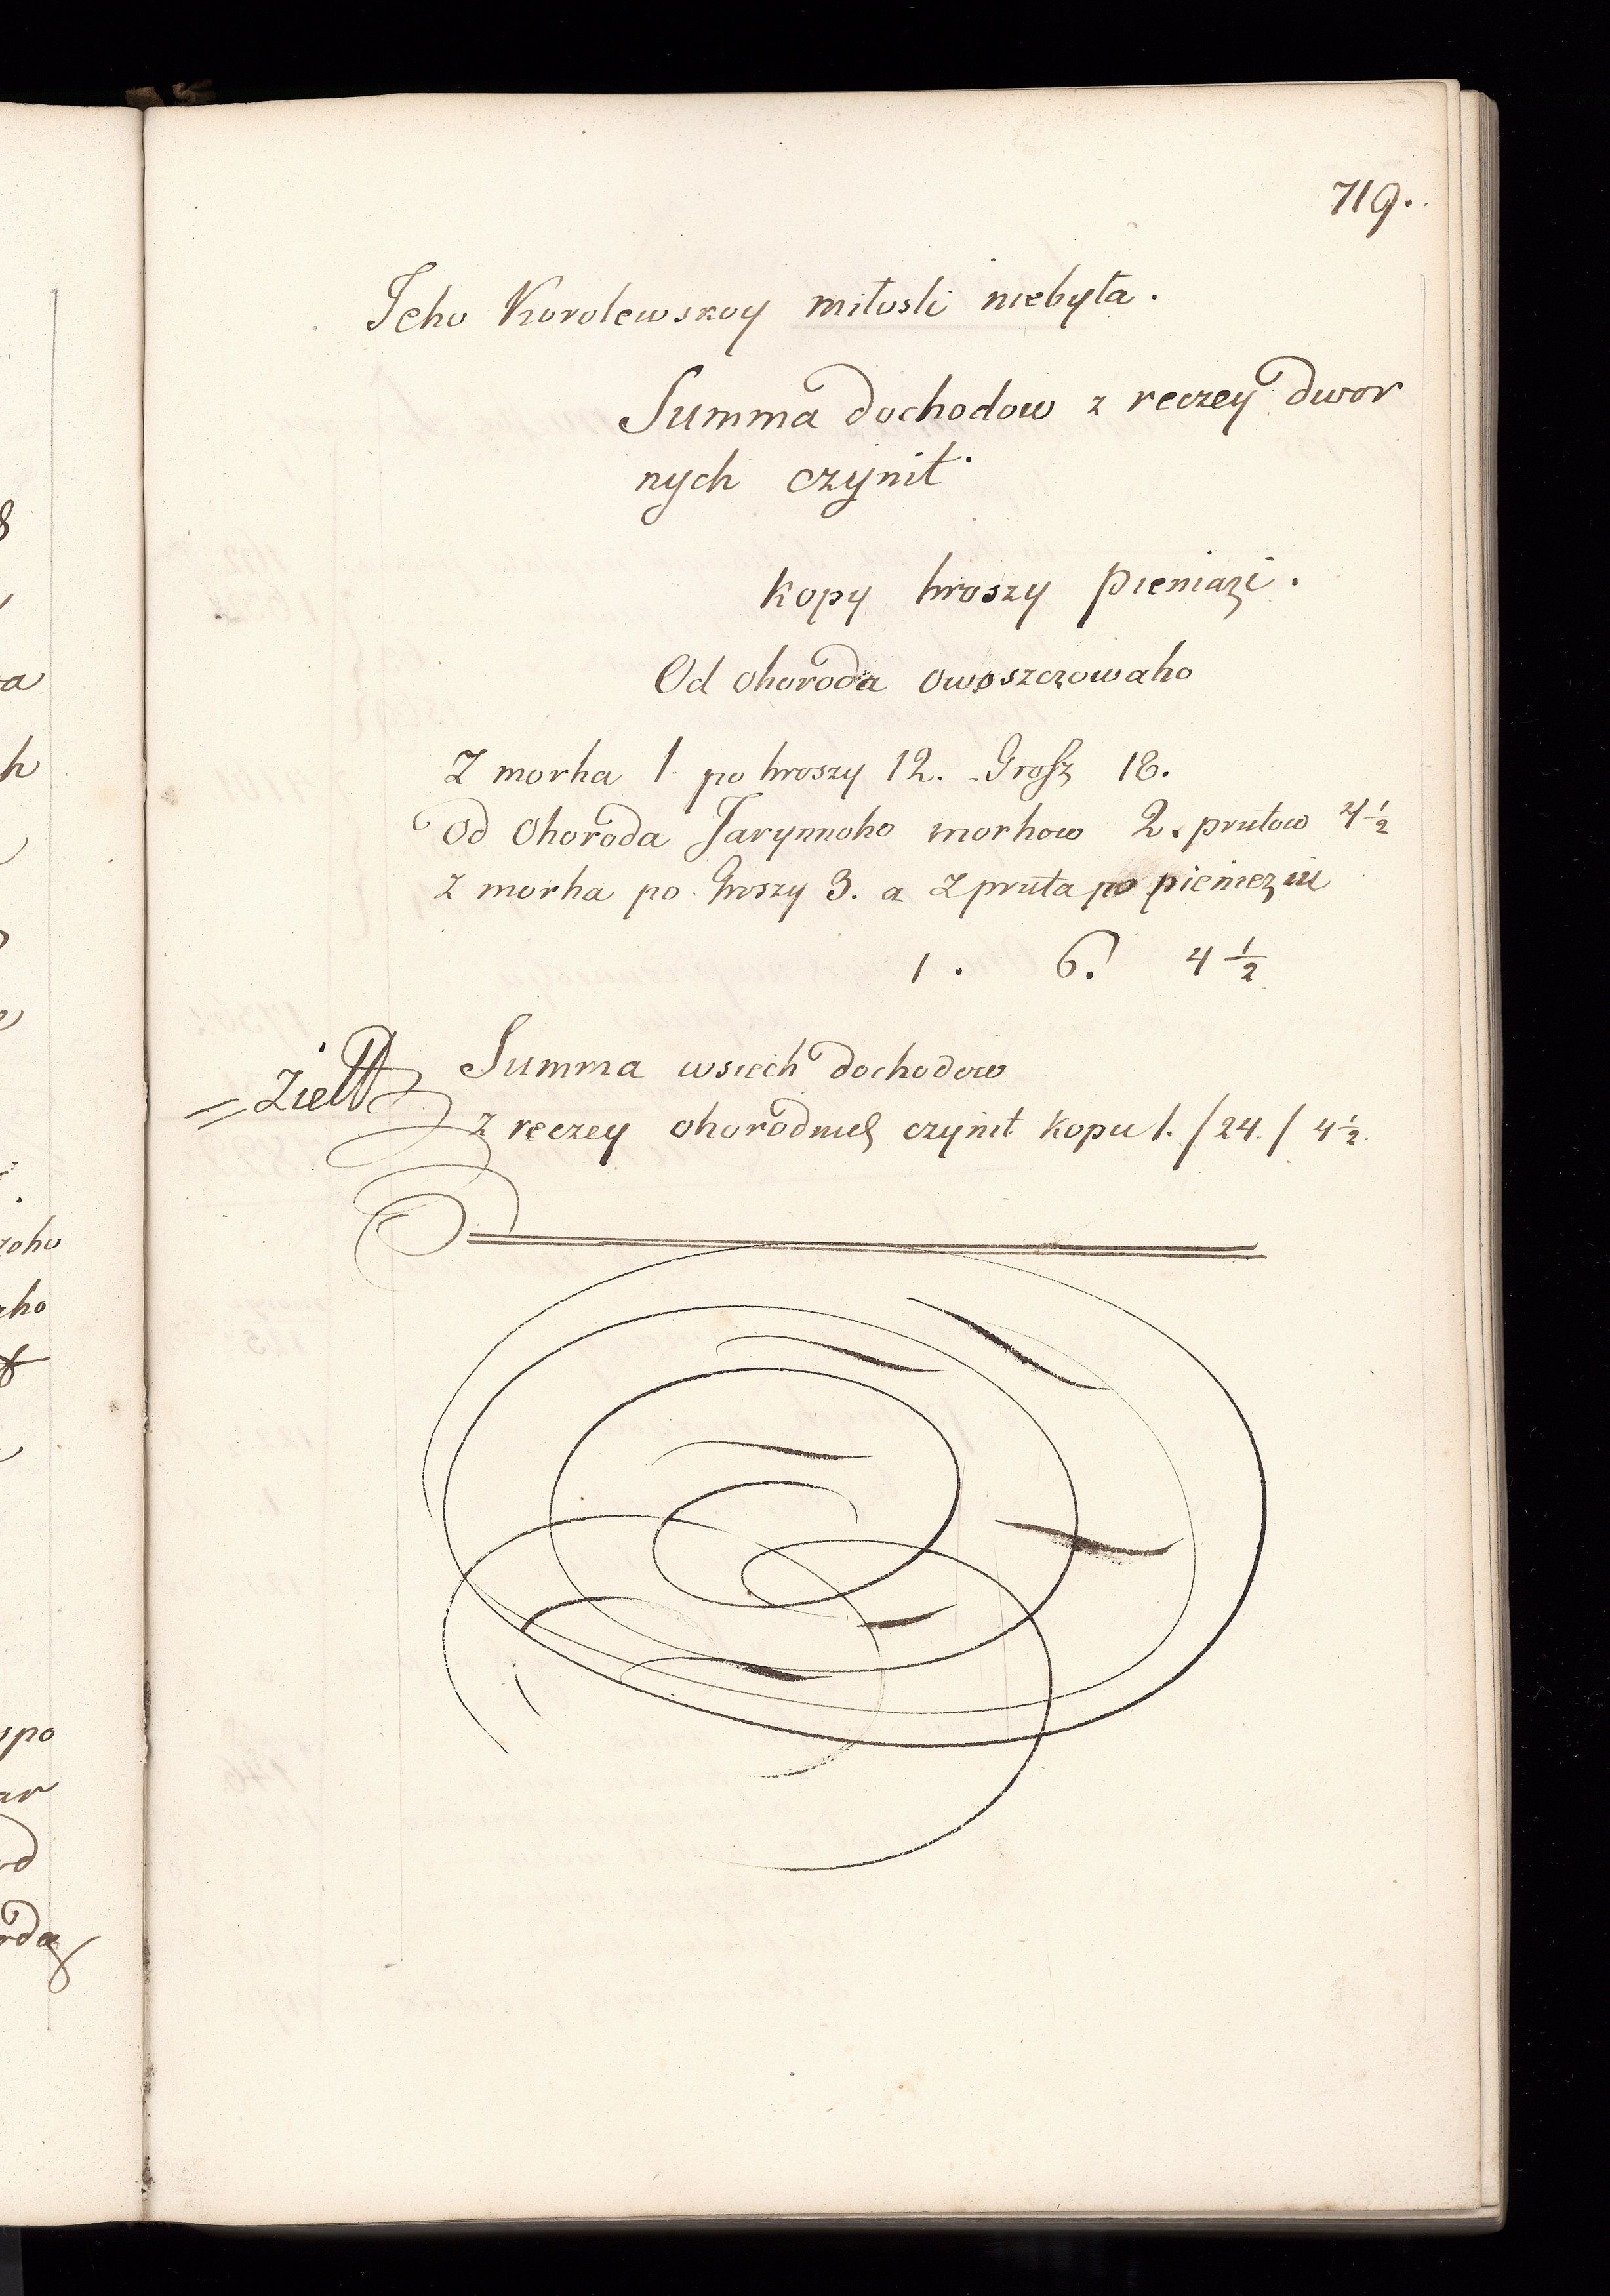 719.
Jeho Korolewskoy miłosti niebyła.
Summa dochodow z reczey dwor
nych czynit
kopy hroszy pieniazi.
Od ohoroda owoszczowaho
Z morha 1 po hroszy 12. Grosz 18.
Od ohoroda Jarynnoho morhow 2. prutow 4½
z morha po Groszy 3. a z pruta po pieniezu
1. 6. 4½
Summa wsiech dochodow
z reczey ohorodnich czynit kopu 1. / 24. / 4½.